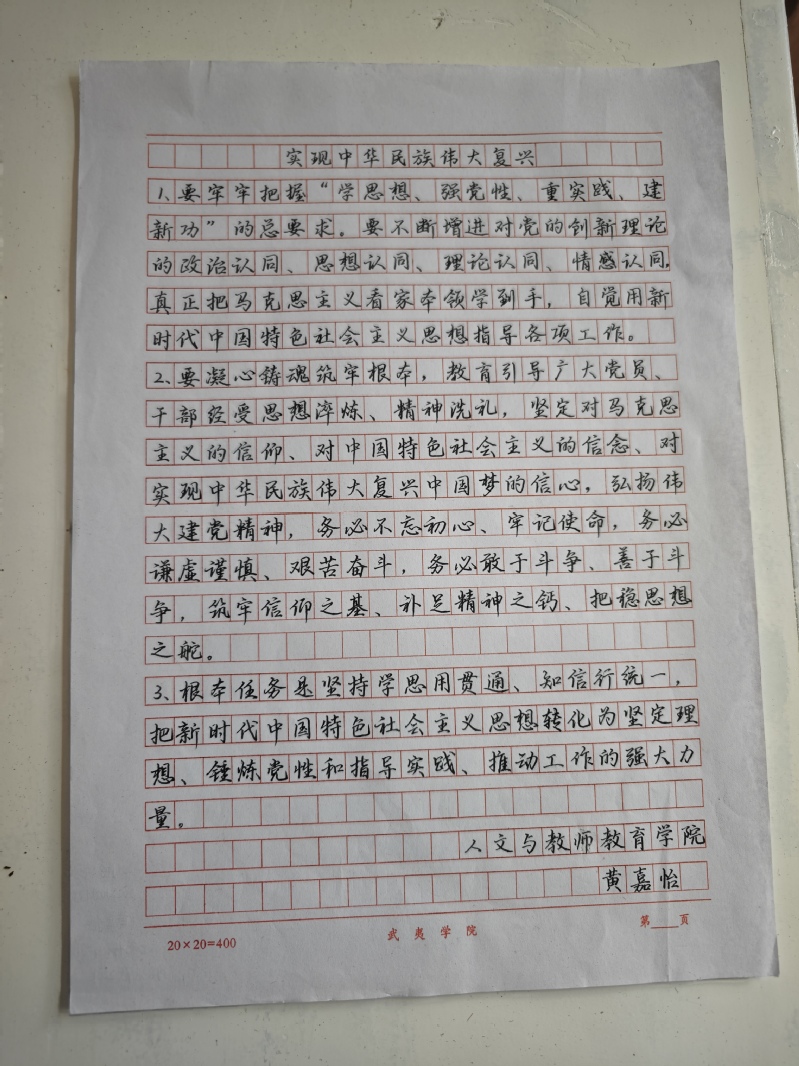 实现中华民族伟大复兴
1、要牢牢把握“学思想、强党性、重实践、建
新功”的总要求。要不断增进对党的创新理论
的政治认同、思想认同、理论认同、情感认同.
真正把马克思主义看家本领学到手，自觉用新
时代中国特色社会主义思想指导各项工作。
2、要凝心铸魂筑牢根本，教育引导广大党员、
干部经受思想淬炼、精神洗礼，坚定对马克思
主义的信仰、对中国特色社会主义的信念、对
实现中华民族伟大复兴中国梦的信心，弘扬伟
大建党精神，务必不忘初心、牢记使命，务必
谦虚谨慎、艰苦奋斗，务必敢于斗争、善于斗
争，筑牢信仰之基、补足精神之钙、把稳思想
之舵。
3、根本任务是坚持学思用贯通、知信行统一，
把新时代中国特色社会主义思想转化为坚定理
想、锤炼党性和指导实践、推动工作的强大力
量。
人文与教师教育学院
黄嘉怡
20×20=400
武夷学院
第____页